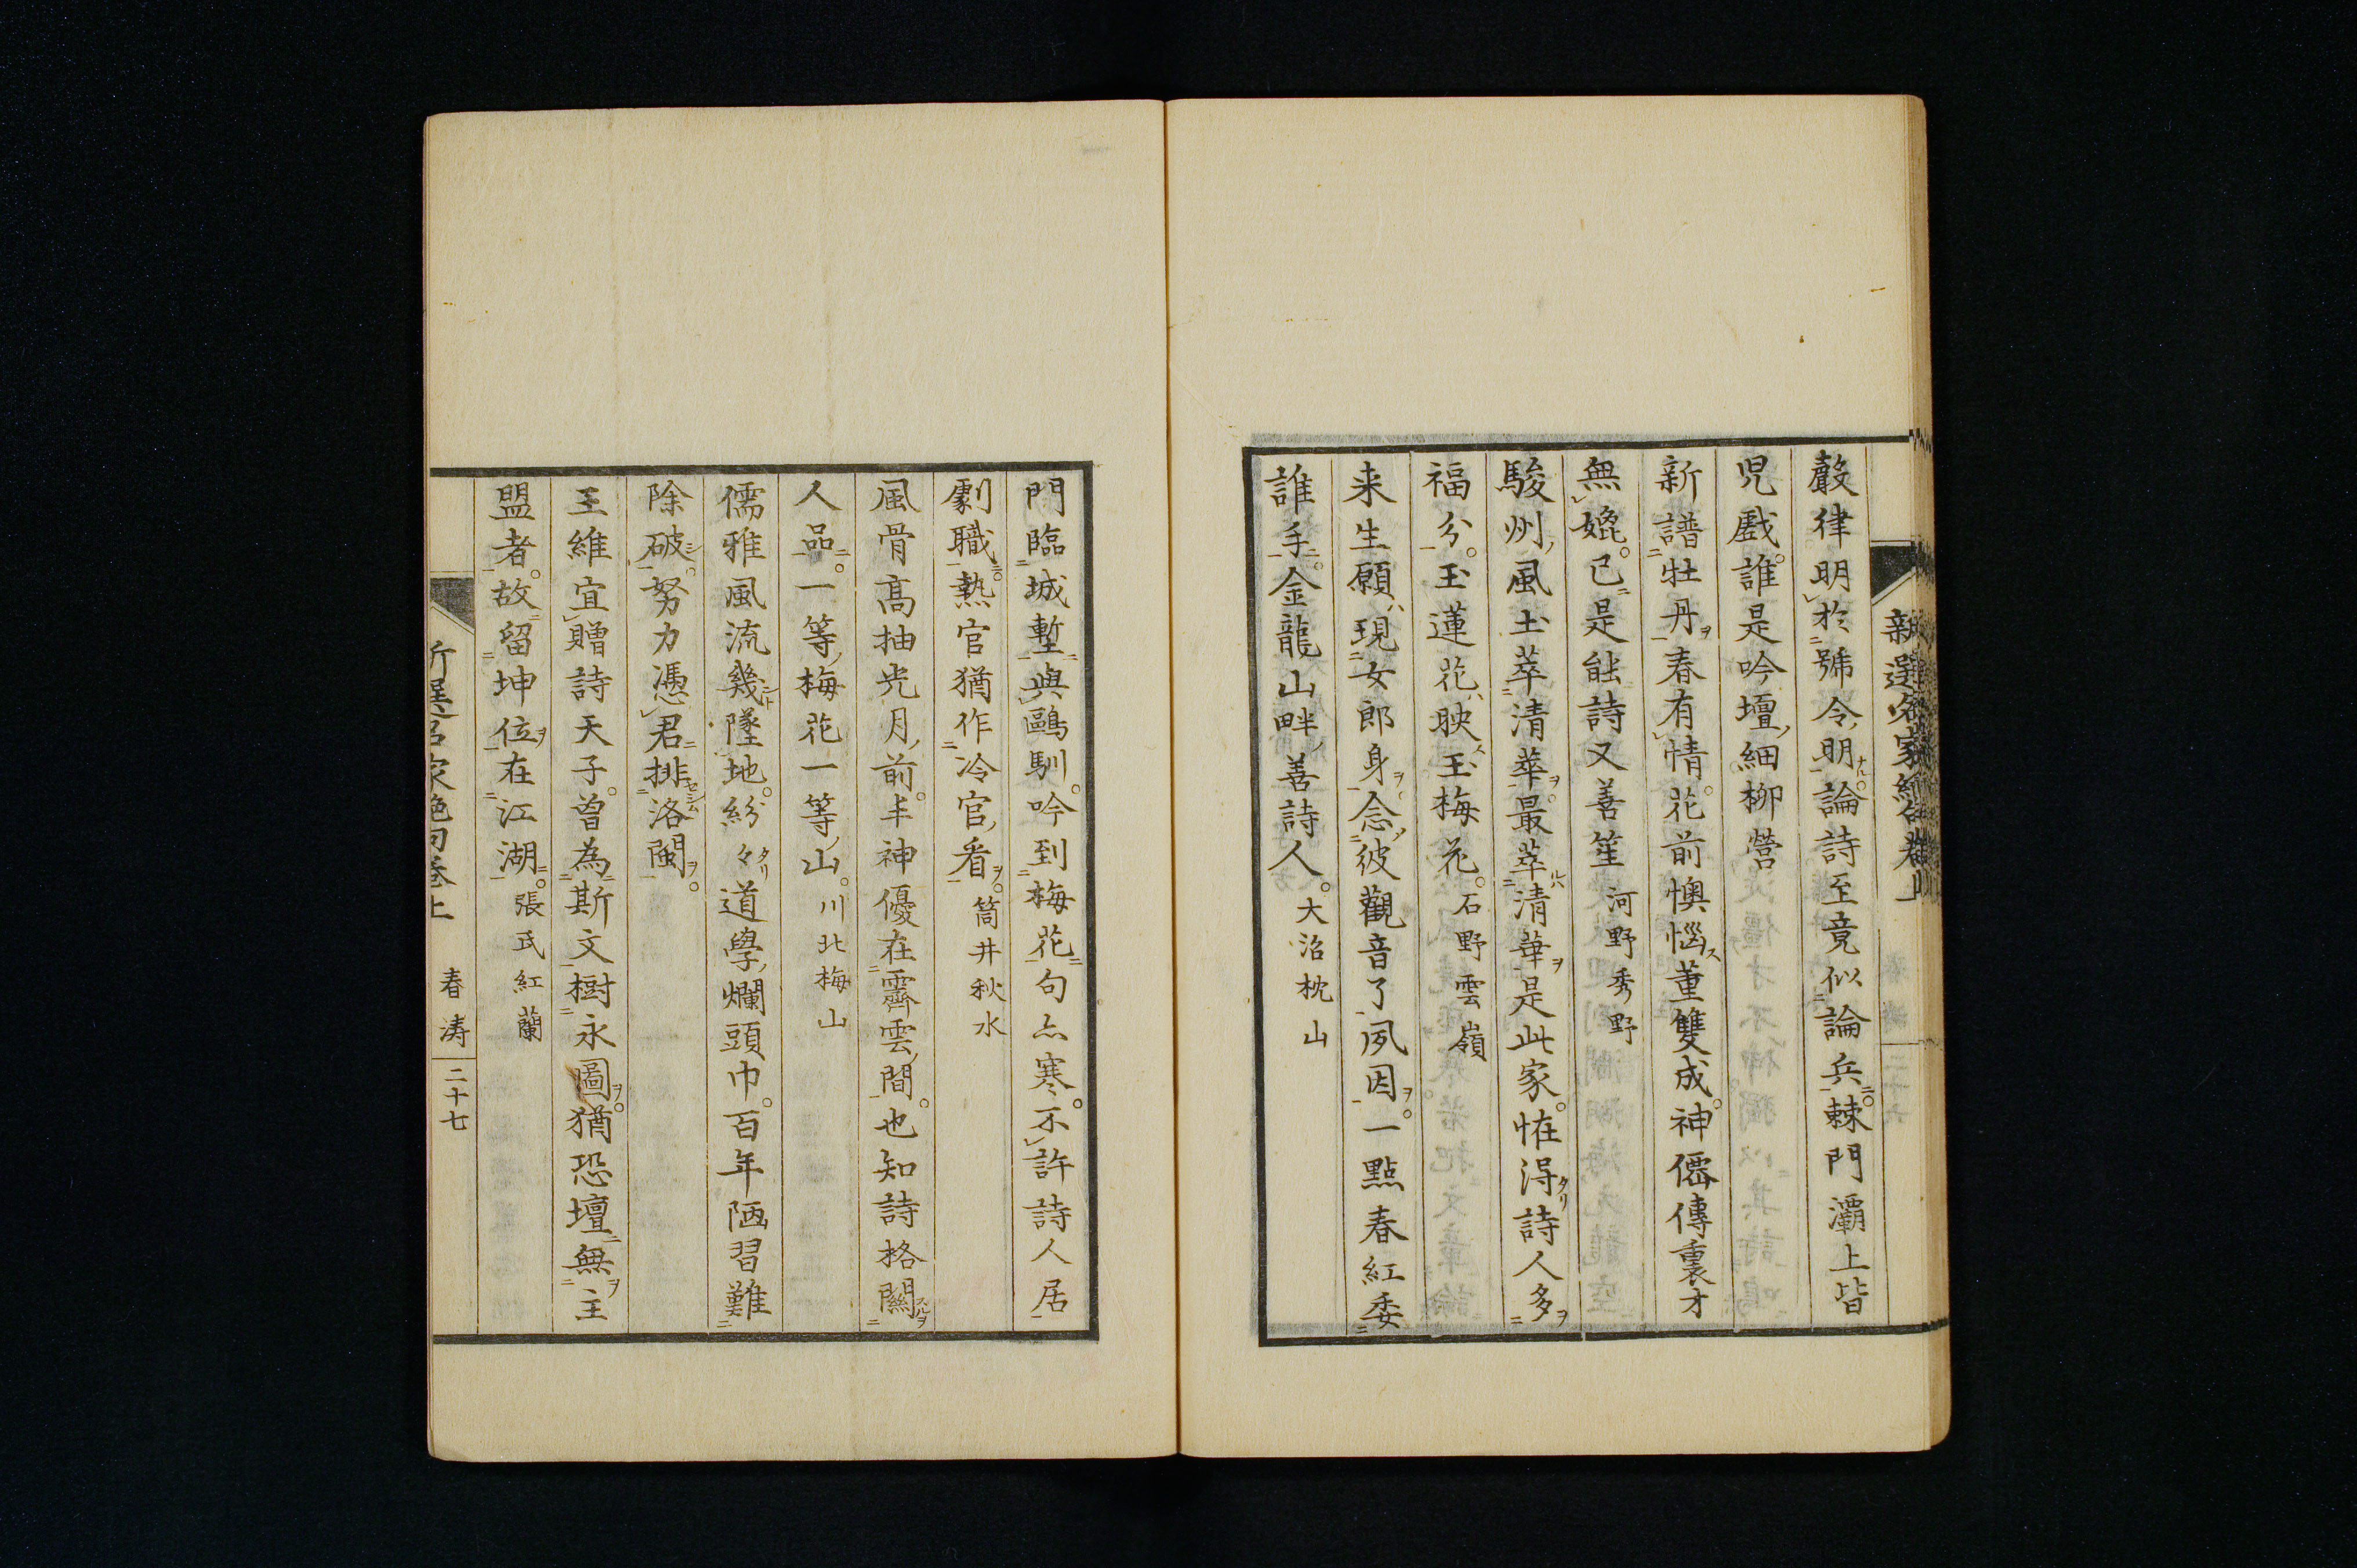 聲律明於號令明論詩至竟似論兵棘門灞上皆
児戯誰是吟壇細柳營
新譜牡丹春有情花前懊惱董雙成神僊傳裏才
無媲已是能詩又善笙 河野秀野
駿州風土萃清華最萃清華是此家恠得詩人多
福分玉蓮花映玉梅花 石野雲嶺
来生願現女郎身念彼觀音了夙因一點春紅委
誰手金龍山畔善詩人 大沼枕山
門臨城塹與鷗馴吟到梅花句亦寒不許詩人居
劇職熱官猶作冷官看 筒井秋水
風骨高抽光月前丰神優在霽雲間也知詩格關
人品一等梅花一等山 川北梅山
儒雅風流幾墜地紛々道學爛頭巾百年陋習難
除破努力憑君排洛閩
王維宜贈詩天子曽為斯文樹永圖猶恐壇無主
盟者故留坤位在江湖 張氏紅蘭
新選名家絶句巻上 春涛 二十七